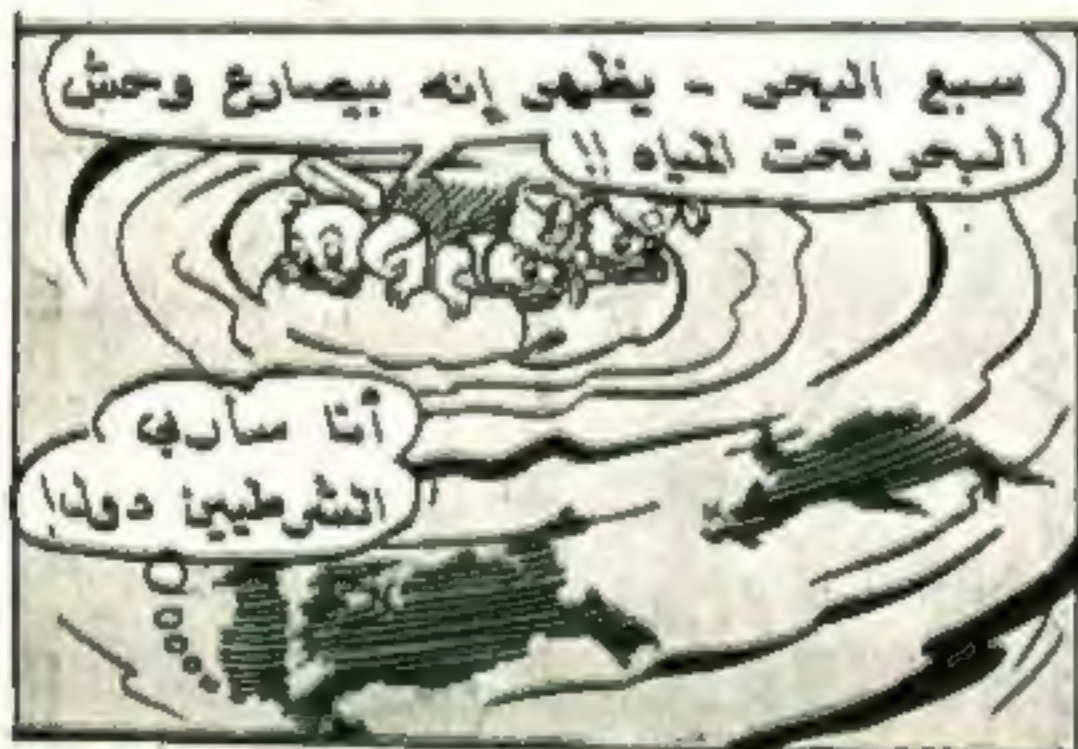 سبع البحر - يظهر إنه بيصارع وحش
البحر تحت المياه !!
أنا سأربي
الشرطيين دول!